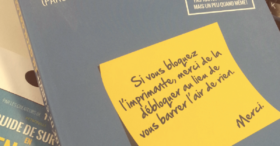 MAIS UN PEU QUAND MÊME!
Si vous bloquez
l'imprimante, merci de la
débloquer au lieu de
vous barrer l'air de rien
Merci
GUIDE DE SUR